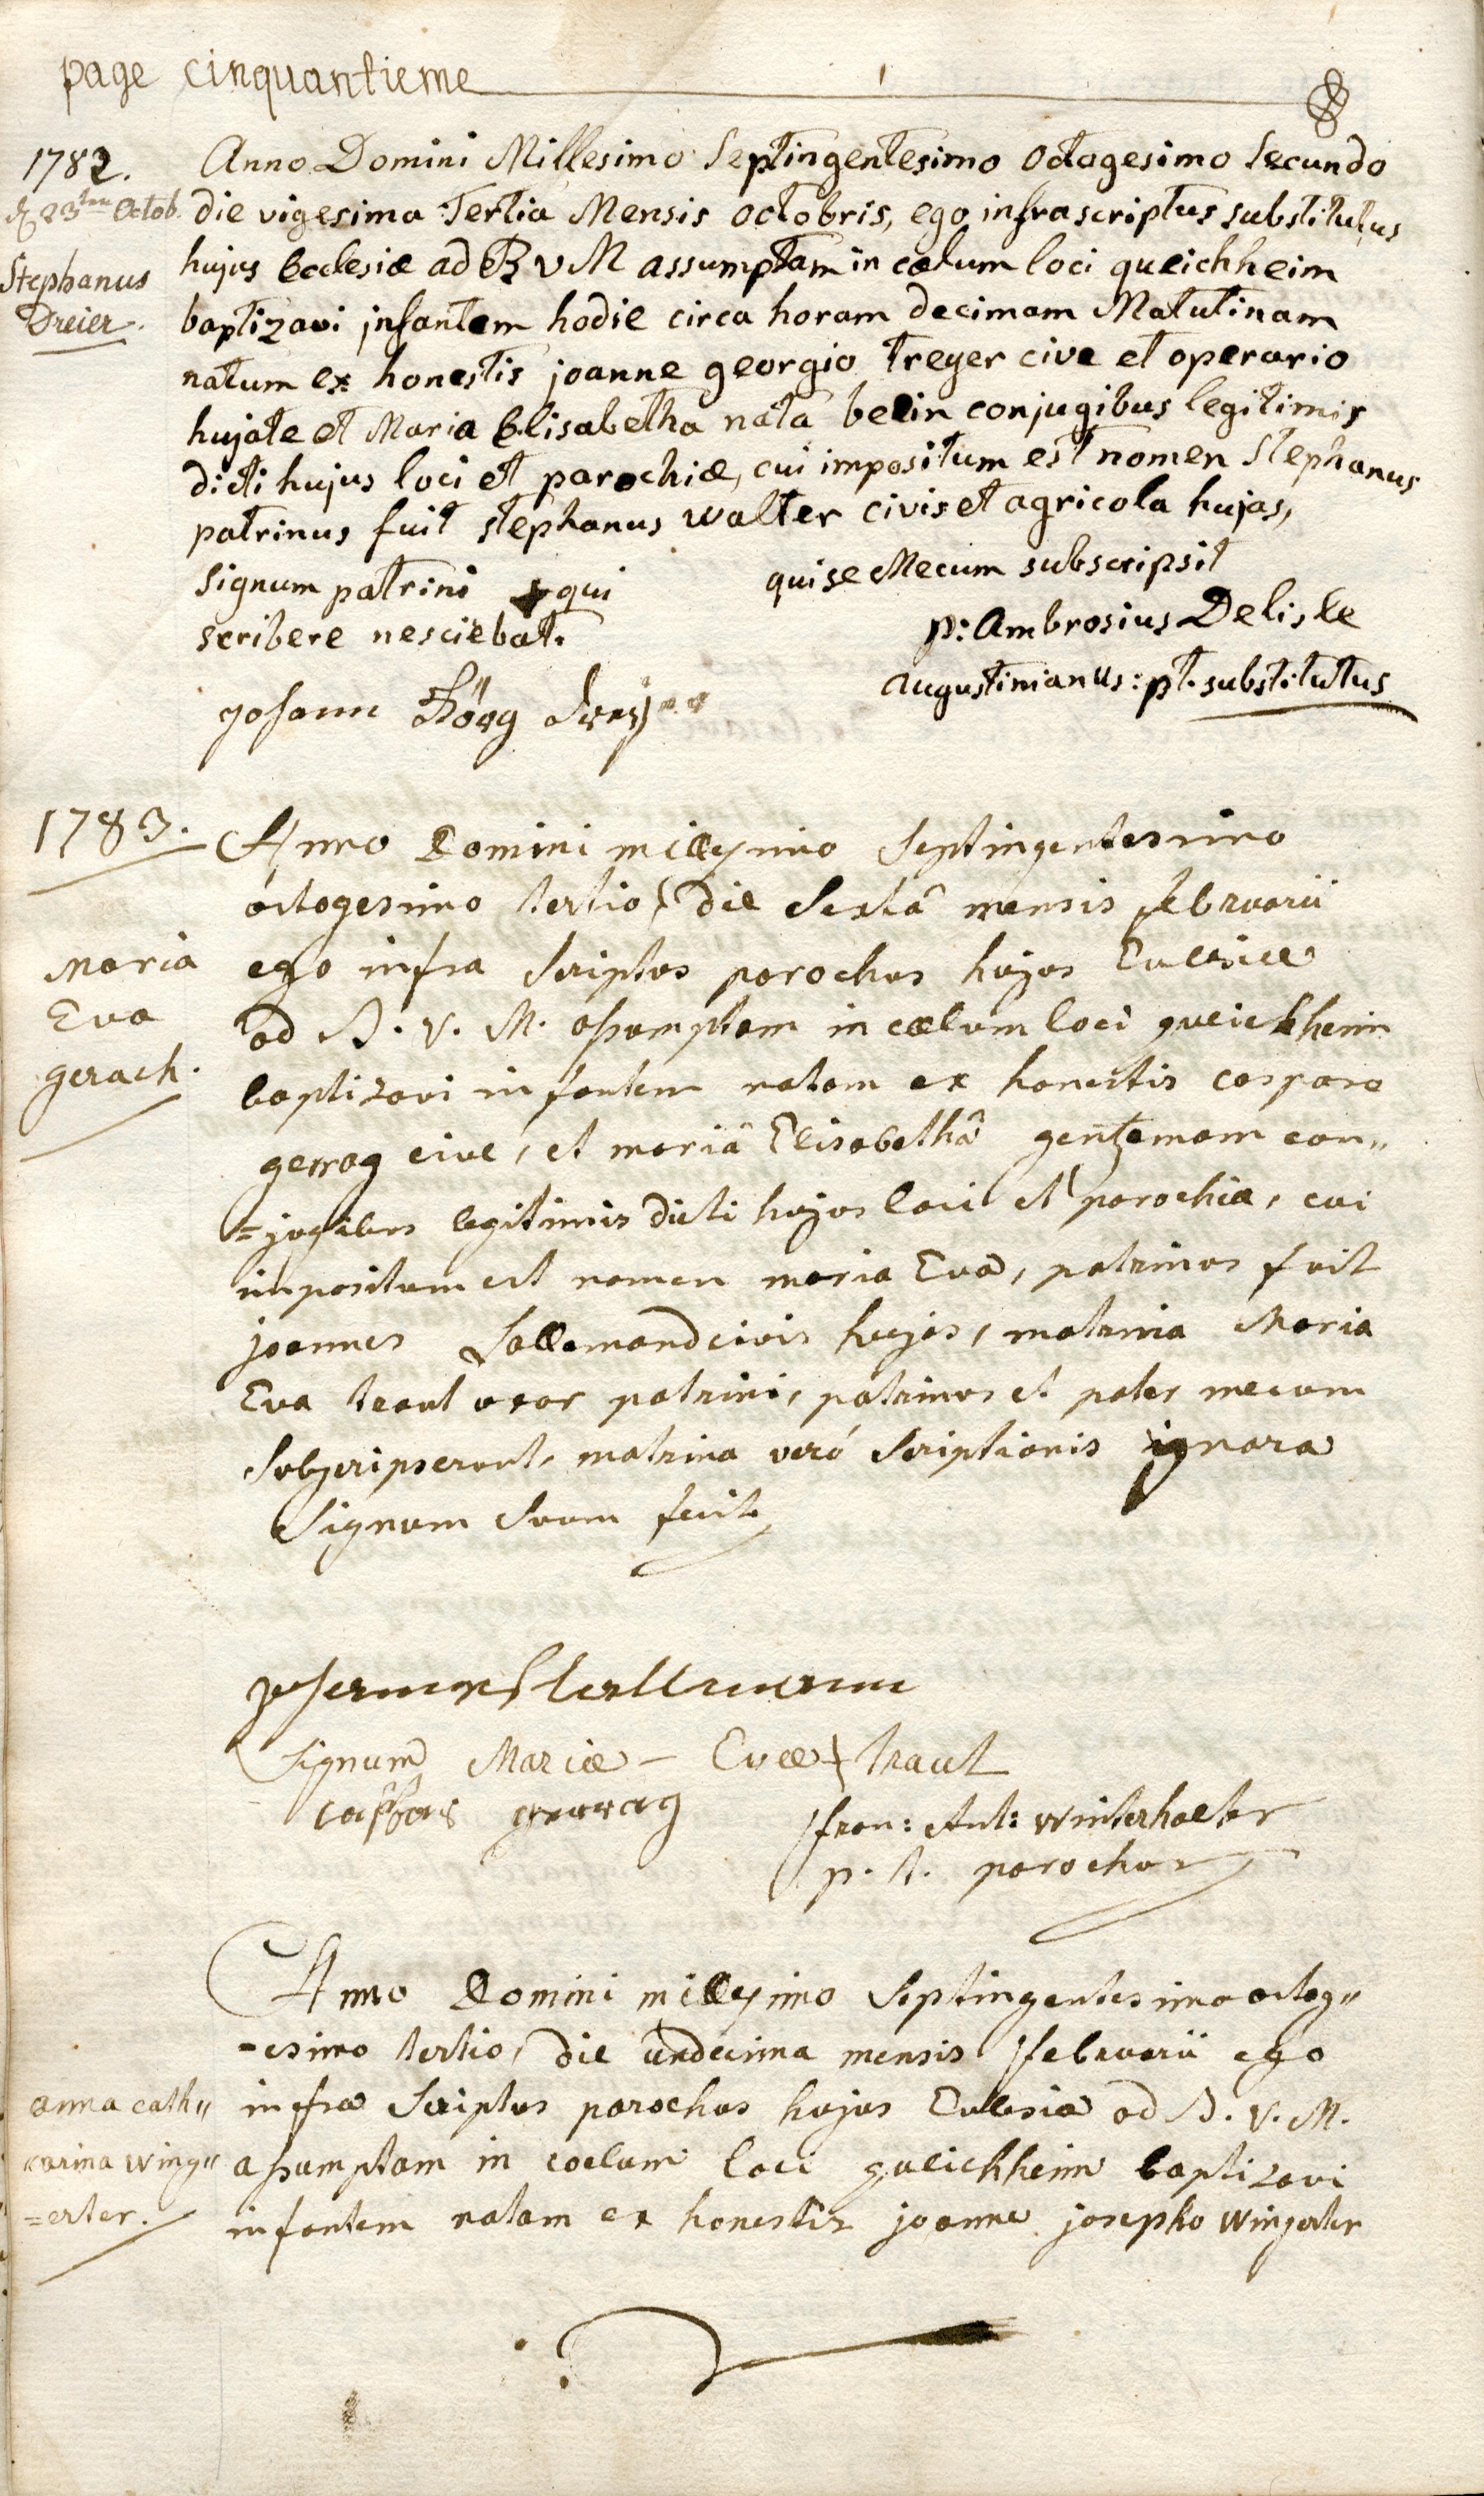 page cinquantieme
1782.
d. 23ten Octob.
Stephanus
Dreier.
Anno Domini Millesimo Septingentesimo octogesimo secundo
die vigesima Tertia Mensis octobris, ego infrascriptus substitutus
hujus Ecclesiæ ad B v M assumptam in cœlum loci queichheim
baptizavi infantem hodie circa horam decimam Matutinam
natum ex honestis joanne georgio Treyer cive et operario
hujate et Maria Elisabetha nata belin conjugibus legitimis
dicti hujus loci et parochiæ, cui impositum est nomen Stephanus
patrinus fuit stephanus walter civis et agricola hujas,
qui se Mecum subscripsit
signum patrini + qui
scribere nesciebat.
p: Ambrosius Delisle
Augustinianus: pt. substitutus
Johann Görg
1783.
Maria
Eva
gerach.
Anno Domini millesimo Septingentesimo
octogesimo tertio, die Sextâ mensis februarii
ego infra Scriptus parochus hujus Ecclesiæ
ad B. V. M. assumptam in cœlum loci queichheim
baptizavi infantem natam ex honestis casparo
gerrag cive, et mariâ Elisabethâ gentzemam con„
=jugibus legitimis dicti hujus loci et parochiæ, cui
impositum est nomen maria Eva, patrinus fuit
joannes Lallemand civis hujas, matrina Maria
Eva traut uxor patrini, patrinus et pater mecum
Subscripserunt, matrina veró Scriptionis ignara
Signum Suum fecit
Signum Mariæ - Evæ + traut
Caspar gerrag
fran: Ant: Winterhalter
p. t. parochus
anna cath„
„arina wing„
=erter.
Anno Domini millesimo Septingentesimo octog„
-esimo tertio, die undecima mensis februarii ego
infra Scriptus parochus hujus Ecclesiæ ad B. V. M.
assumptam in coelum loci queichheim baptizavi
infantem natam ex honestis joanne josepho Wingerter